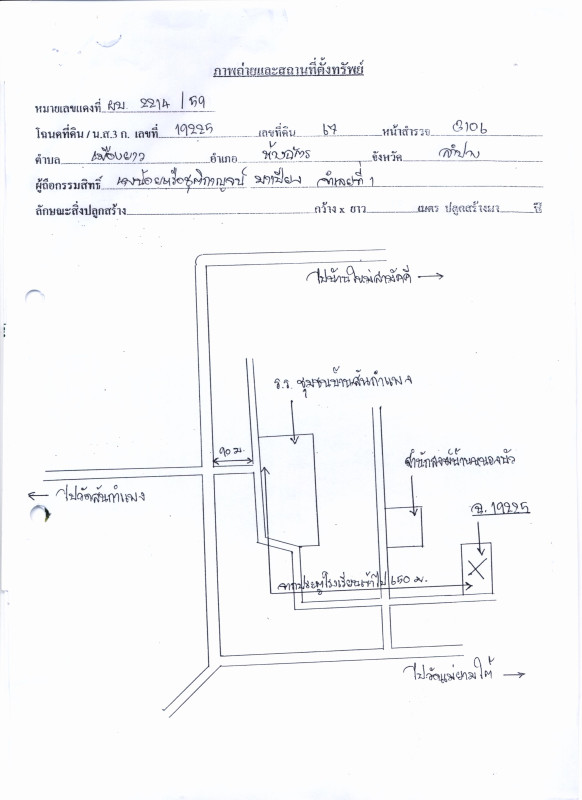 ภาพถ่ายและสถานที่ตั้งทรัพย์
หมายเลขแดงที่ ผบ. 2214 / 59
โฉนดที่ดิน / น.ส.3 ก. เลขที่ 19225 เลขที่ดิน 67 หน้าสำรวจ 3106
ตำบล เมืองยาว อำเภอ ห้างฉัตร จังหวัด ลำปาง
ผู้ถือกรรมสิทธิ์ จำเลยที่ 1
ลักษณะสิ่งปลูกสร้าง กว้าง x ยาว เมตร ปลูกสร้างมา ปี
ไปบ้านใหม่สามัคคี
ร.ร. ชุมชนบ้านสันกำแพง
90 ม.
สำนักสงฆ์บ้านหนองบัว
ไปวัดสันกำแพง
ฉ. 19225
จากประตูโรงเรียนเข้าไป 650 ม.
ไปวัดแม่ยามใต้